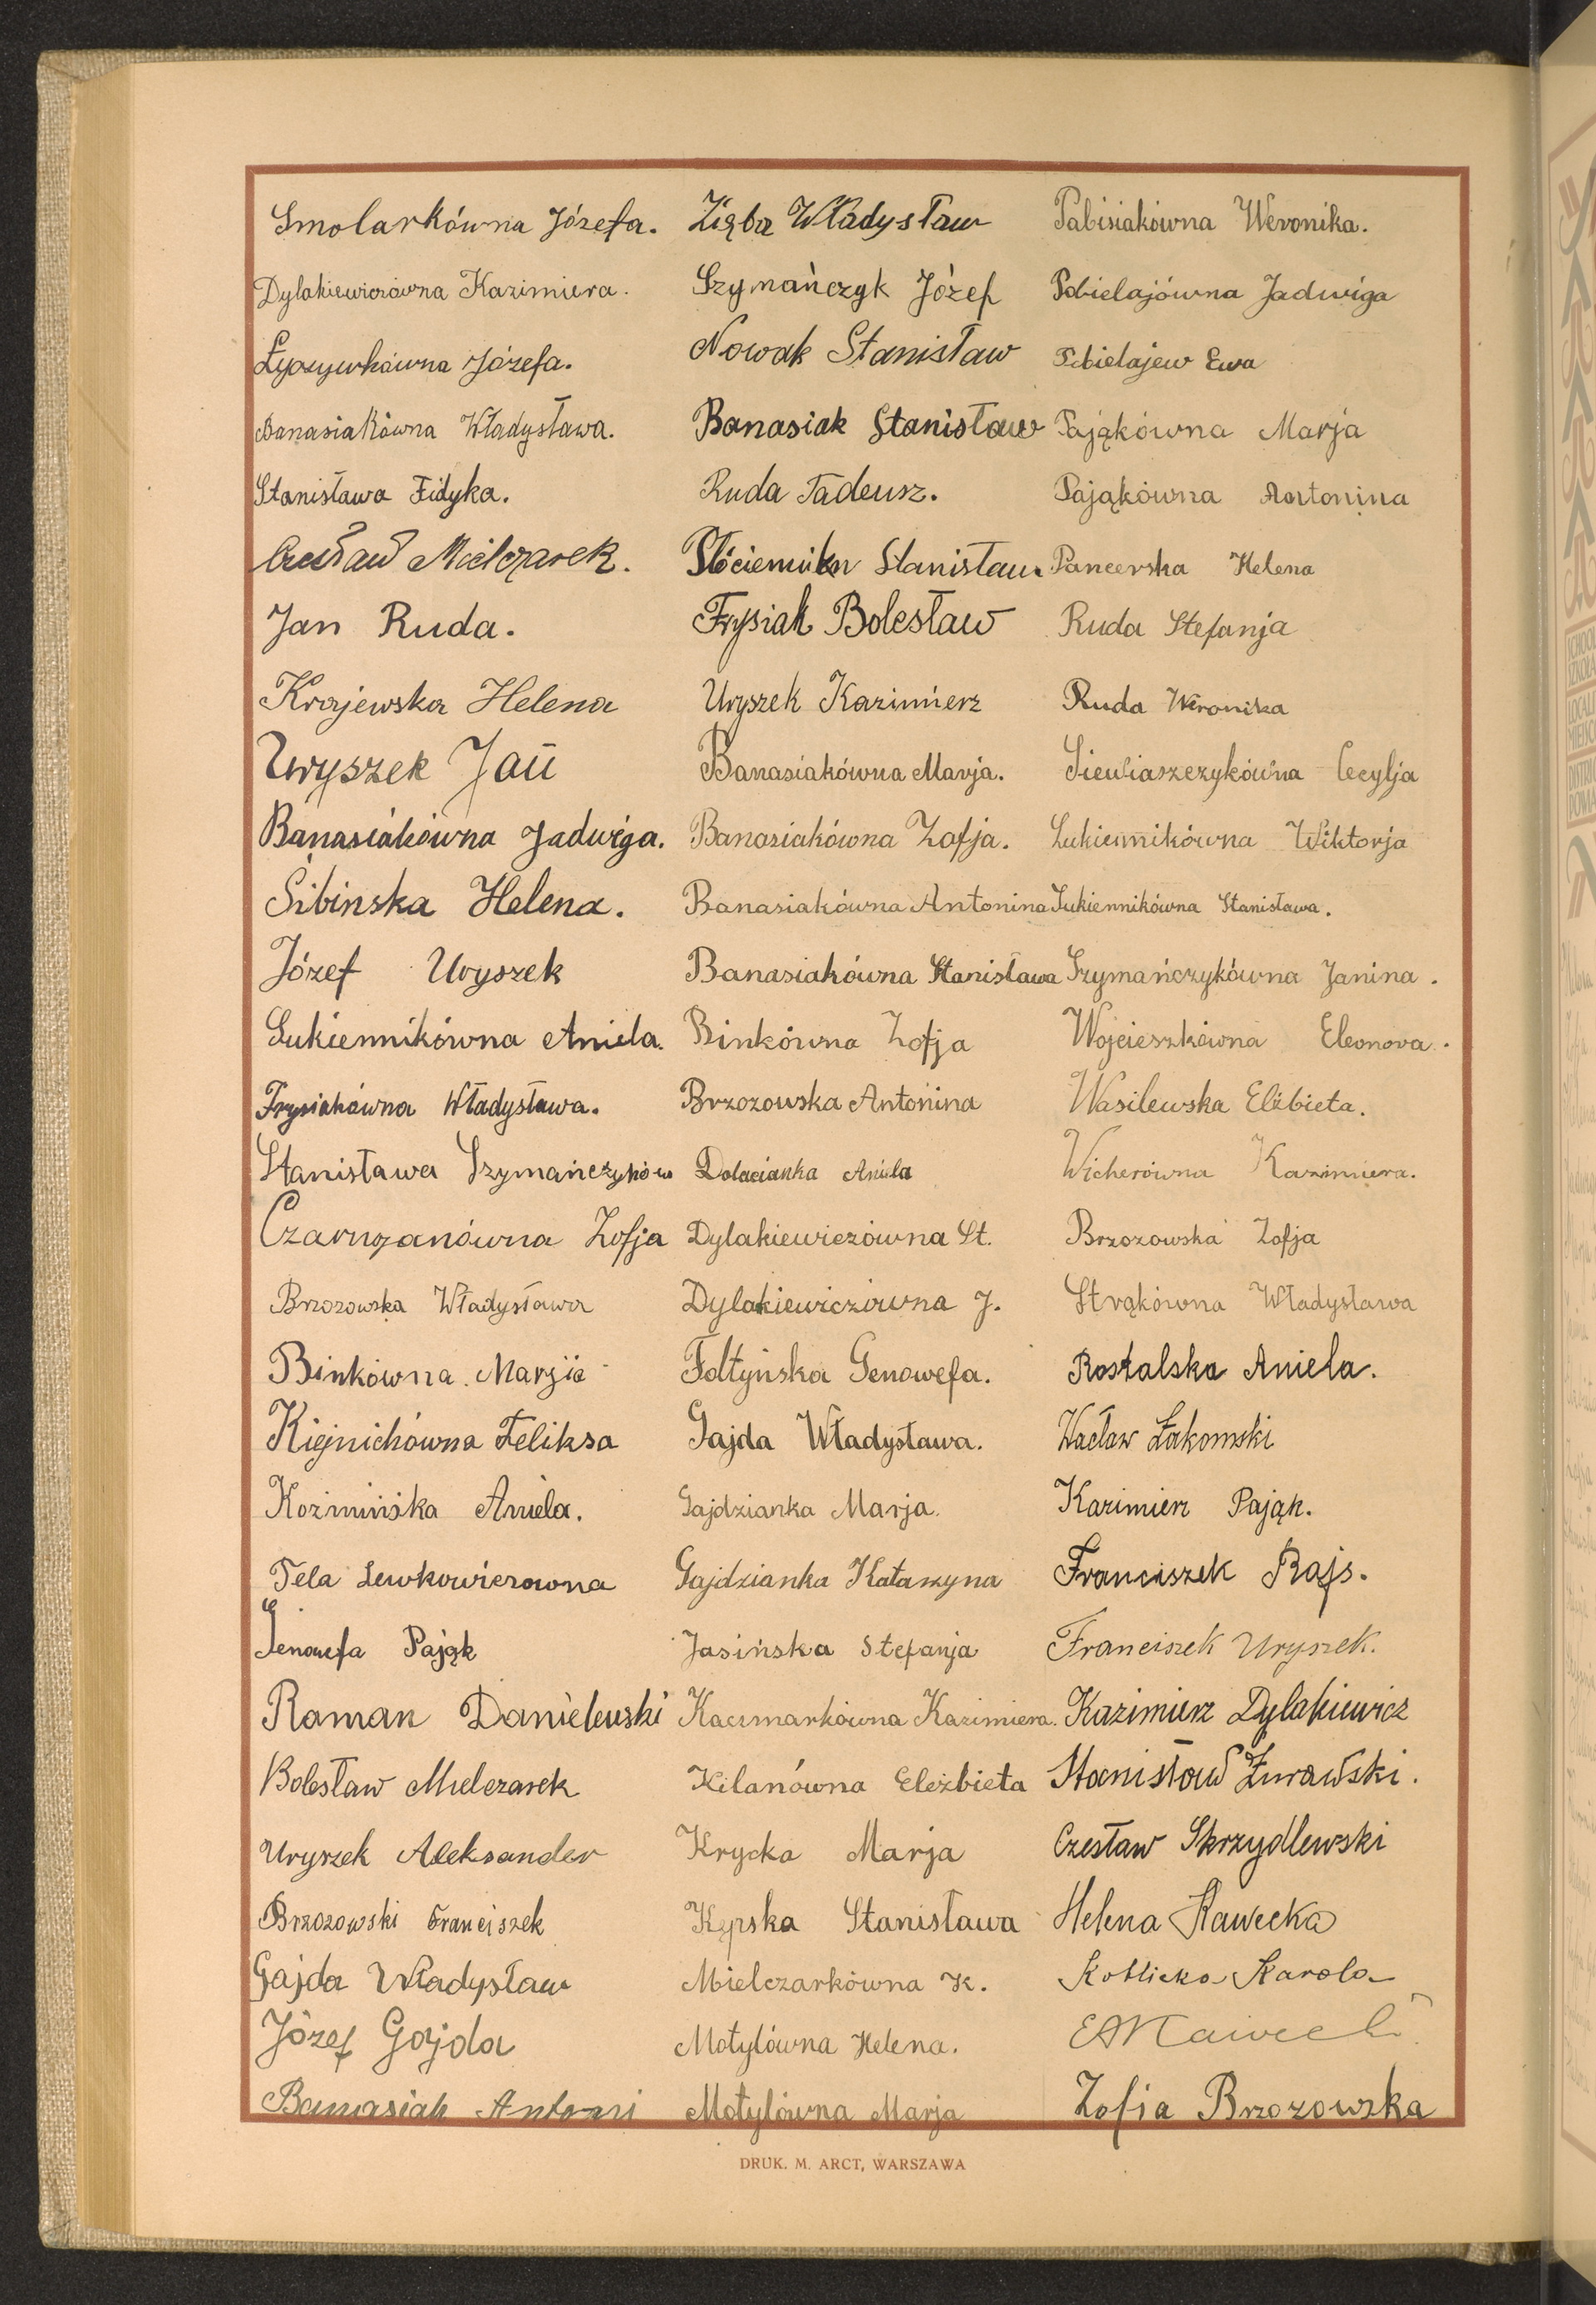 Smolarkówna Józefa.
Dylakiewiczówna Kazimiera.
Józefa.
Banasiakówna Władysława.
Stanisława Fidyka.
Czesław Mielczarek.
Jan Ruda.
Krajewska Helena
Uryszek Jan
Banasiakówna Jadwiga.
Sibinska Helena.
Józef Uryszek
Sukiennikówna Aniela.
Frysiakówna Władysława.
Stanisława Szymańczyków
Zofja
Brzozowska Władysława
Binkówna Marjia
Kiejnichówna Feliksa
Koźmińska Aniela.
Tela Lewkowiczowna
Genowefa Pająk
Roman Danielewski
Bolesław Mielczarek
Uryszek Aleksander
Brzozowski Franciszek
Gajda Władysław
Józef Gajda
Banasiak Antoni
Zięba Władysław
Szymańczyk Józef
Nowak Stanisław
Banasiak Stanisław
Ruda Tadeusz.
Stanisław
Frysiak Bolesław
Uryszek Kazimierz
Banasiakówna Marja.
Banasiakówna Zofja.
Banasiakówna Antonina
Banasiakówna Stanisława
Binkówna Zofja
Brzozowska Antonina
Dolacianka Aniela
Dylakiewiczówna St.
Dylakiewiczówna J.
Fołtyńska Genowefa.
Gajda Władysława.
Gajdzianka Marja.
Gajdzianka Katarzyna
Jasińska Stefanja
Kaczmarkówna Kazimiera.
Kilanówna Eleżbieta
Krycka Marja
Kępska Stanisława
Mielczarkówna K.
Motylówna Helena.
Motylówna Marja
Pabisiakówna Weronika.
Pobielajówna Jadwiga
Pobielajew Ewa
Pająkówna Marja
Pająkówna Antonina
Pancerska Helena
Ruda Stefanja
Ruda Weronika
Siewiaszczykówna Cecylja
Sukiennikówna Wiktorja
Sukiennikówna Stanisława.
Szymańczykówna Janina.
Wojcieszkówna Eleonora.
Wasilewska Elżbieta.
Wicherówna Kazimiera.
Brzozowska Zofja
Strąkówna Władysława
Rostalska Aniela.
Wacław Łakomski
Kazimierz Pająk.
Franciszek Rajs.
Franciszek Uryszek.
Kazimierz Dylakiewicz
Stanisław Żurawski.
Czesław Skrzydlewski
Helena Kawecka
Koblicka Karola
Zofia Brzozowska
DRUK. M. ARCT, WARSZAWA